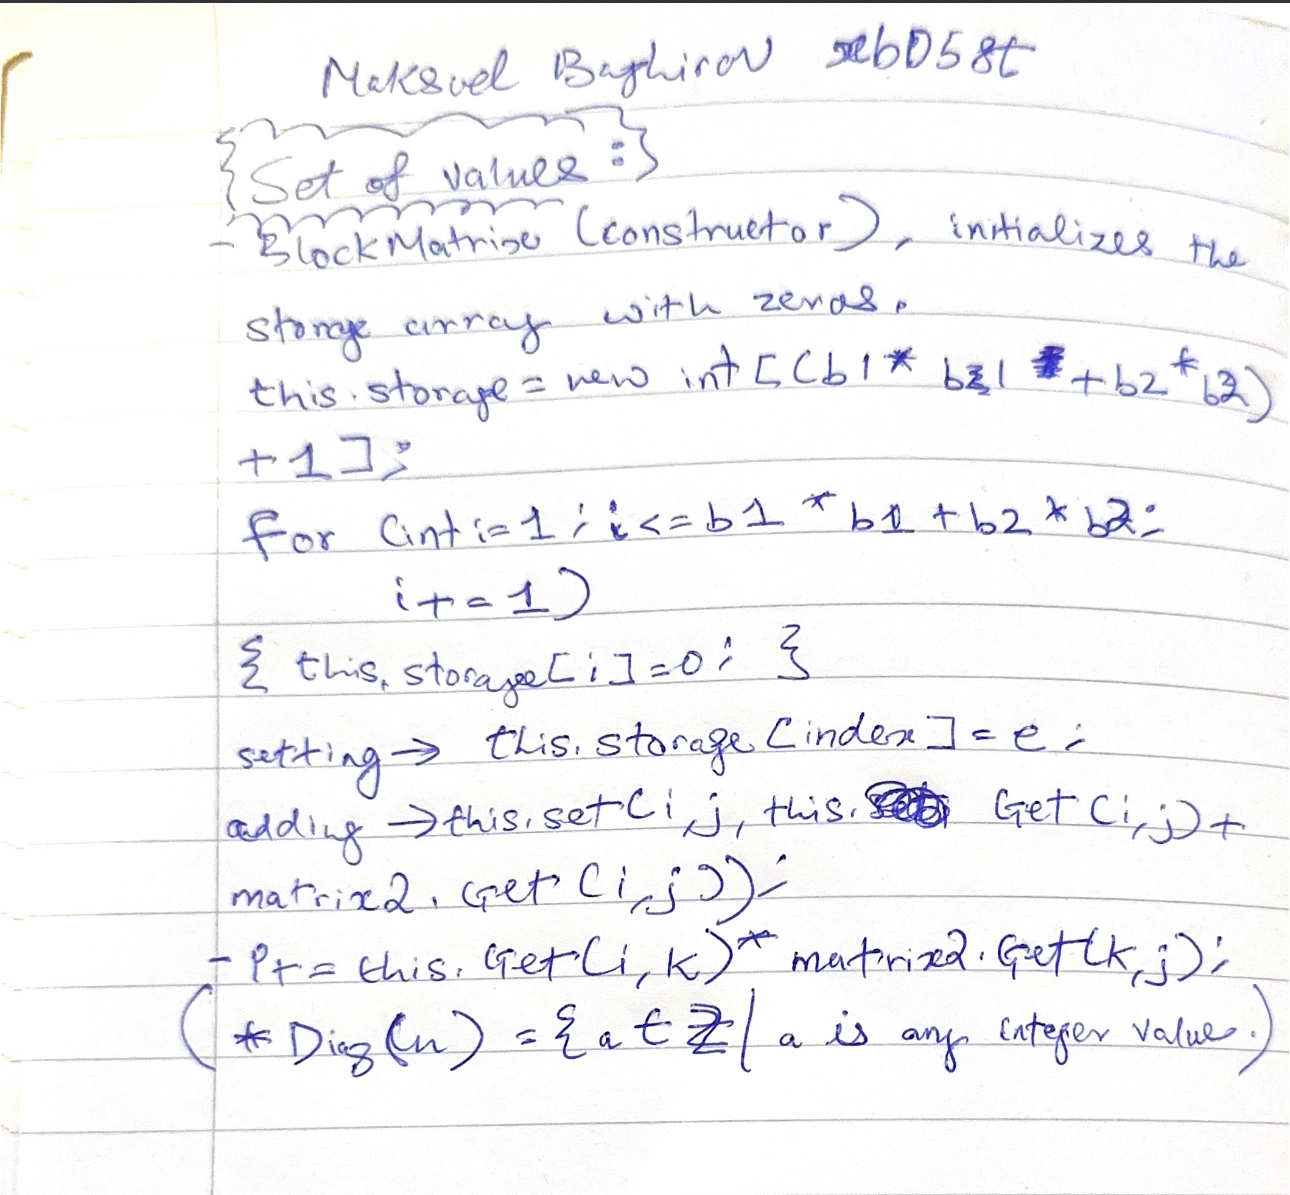 Maksuel Baghirov xeb058t
{Set of values :}
- BlockMatrix (constructor), initializes the
storage array with zeros.
this.storage = new int [(b1* b1 + b2 * b2)
+1];
for (int i=1; i<=b1 * b1 + b2 * b2;
i+=1)
{ this.storage[i]=0; }
setting → this.storage [index] = e;
adding → this.set(i, j, this. Get (i,j) +
matrix2. Get (i,j));
- P+= this. Get(i, k)* matrix2. Get(k,j);
(* Diag (n) = {a ∈ ℤ | a is any integer value.)